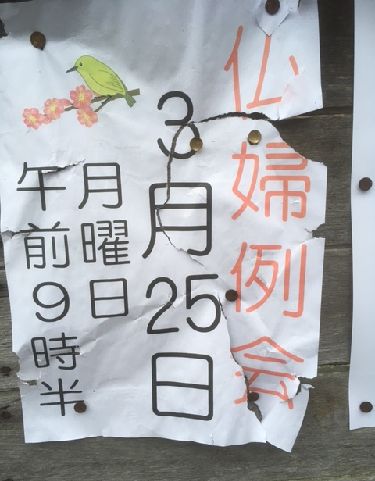 仏婦例会
3月25日
月曜日
午前9時半